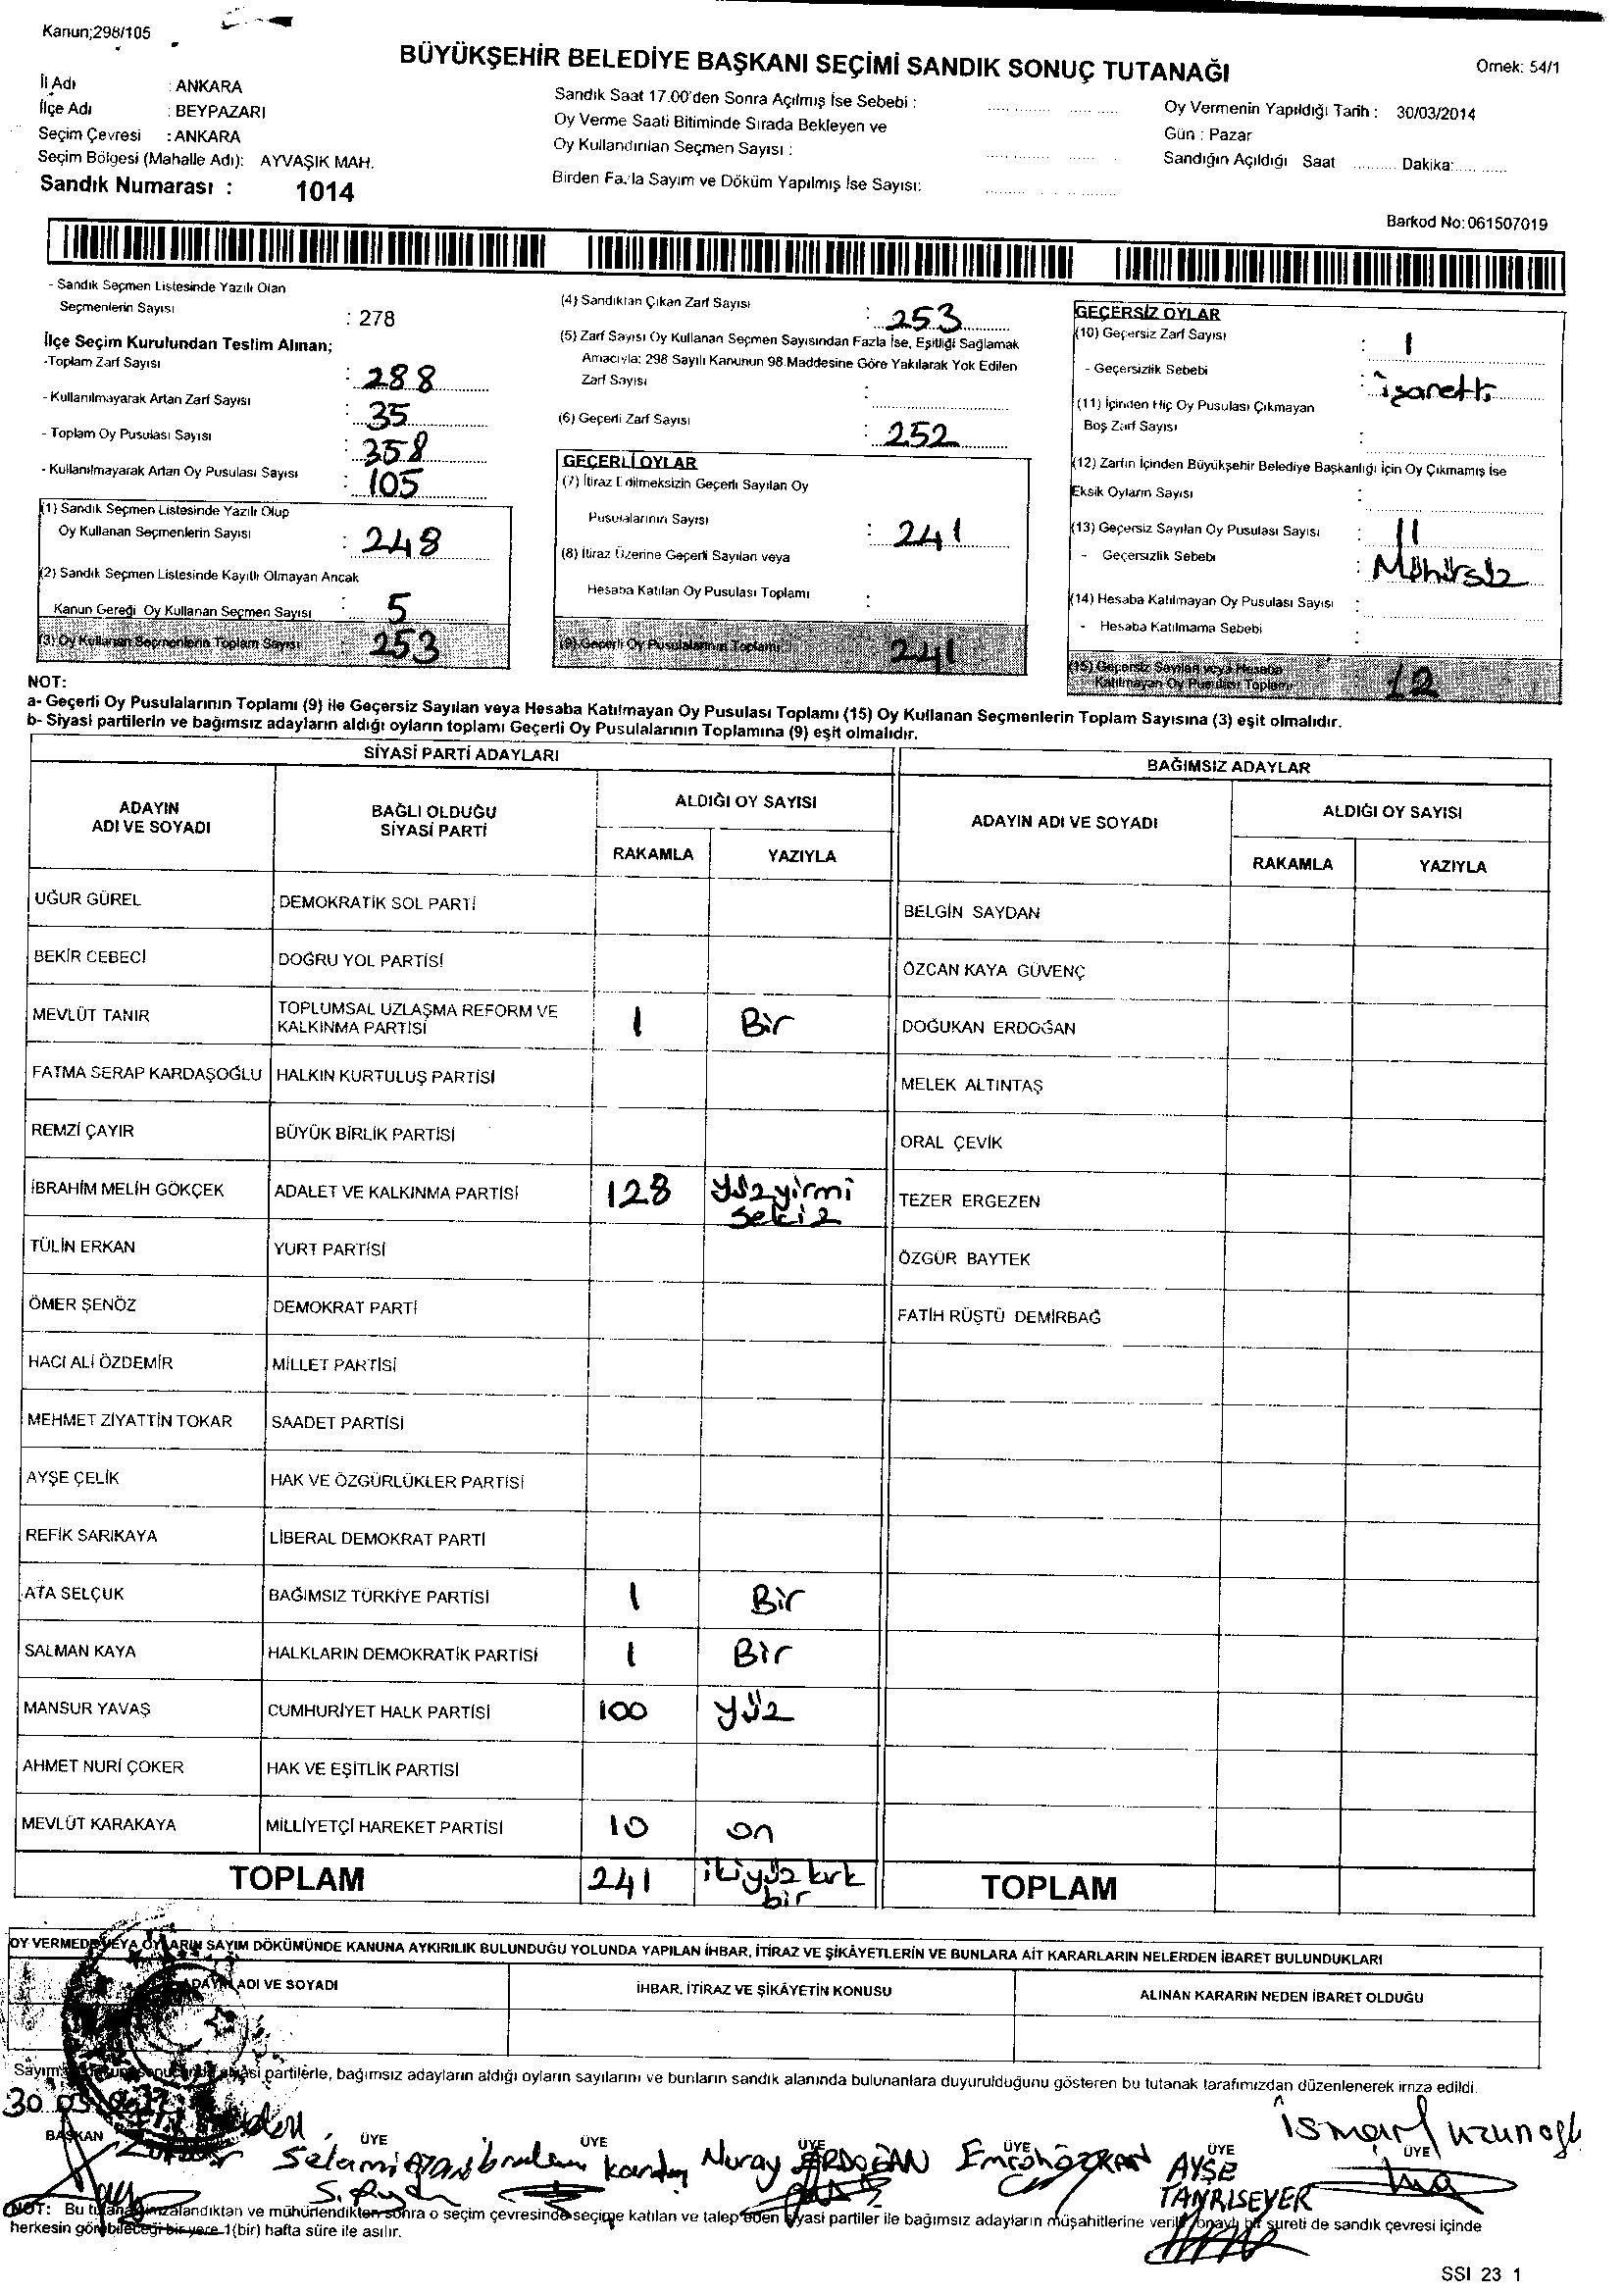 Kanun;298/105
BÜYÜKŞEHİR BELEDİYE BAŞKANI SEÇİMİ SANDIK SONUÇ TUTANAĞI
Ornek: 54/1
İl Adı : ANKARA
İlçe Adı : BEYPAZARI
Seçim Çevresi : ANKARA
Seçim Bölgesi (Mahalle Adı): AYVAŞIK MAH.
Sandık Numarası : 1014
Sandık Saat 17.00'den Sonra Açılmış İse Sebebi :
Oy Verme Saati Bitiminde Sırada Bekleyen ve
Oy Kullandırılan Seçmen Sayısı :
Birden Fazla Sayım ve Döküm Yapılmış İse Sayısı:
Oy Vermenin Yapıldığı Tarih : 30/03/2014
Gün : Pazar
Sandığın Açıldığı Saat .......... Dakika:...........
Barkod No:061507019
- Sandık Seçmen Listesinde Yazılı Olan
Seçmenlerin Sayısı : 278
İlçe Seçim Kurulundan Teslim Alınan;
-Toplam Zarf Sayısı : 288
- Kullanılmayarak Artan Zarf Sayısı : 35
- Toplam Oy Pusulası Sayısı : 358
- Kullanılmayarak Artan Oy Pusulası Sayısı : 105
(1) Sandık Seçmen Listesinde Yazılı Olup
Oy Kullanan Seçmenlerin Sayısı : 248
(2) Sandık Seçmen Listesinde Kayıtlı Olmayan Ancak
Kanun Gereği Oy Kullanan Seçmen Sayısı : 5
(3) Oy Kullanan Seçmenlerin Toplam Sayısı 253
(4) Sandıktan Çıkan Zarf Sayısı : 253
(5) Zarf Sayısı Oy Kullanan Seçmen Sayısından Fazla İse, Eşitliği Sağlamak
Amacıyla: 298 Sayılı Kanunun 98.Maddesine Göre Yakılarak Yok Edilen
Zarf Sayısı :
(6) Geçerli Zarf Sayısı : 252
GEÇERLİ OYLAR
(7) İtiraz Edilmeksizin Geçerli Sayılan Oy
Pusulalarının Sayısı : 241
(8) İtiraz Üzerine Geçerli Sayılan veya
Hesaba Katılan Oy Pusulası Toplamı :
(9) Geçerli Oy Pusulalarının Toplamı 241
GEÇERSİZ OYLAR
(10) Geçersiz Zarf Sayısı : 1
- Geçersizlik Sebebi : işaretli
(11) İçinden Hiç Oy Pusulası Çıkmayan
Boş Zarf Sayısı :
(12) Zarfın İçinden Büyükşehir Belediye Başkanlığı İçin Oy Çıkmamış İse
Eksik Oyların Sayısı :
(13) Geçersiz Sayılan Oy Pusulası Sayısı : 11
- Geçersizlik Sebebi : Mühürsüz
(14) Hesaba Katılmayan Oy Pusulası Sayısı :
- Hesaba Katılmama Sebebi :
(15) Geçersiz Sayılan veya Hesaba
Katılmayan Oy Pusulası Toplamı 12
NOT:
a- Geçerli Oy Pusulalarının Toplamı (9) ile Geçersiz Sayılan veya Hesaba Katılmayan Oy Pusulası Toplamı (15) Oy Kullanan Seçmenlerin Toplam Sayısına (3) eşit olmalıdır.
b- Siyasi partilerin ve bağımsız adayların aldığı oyların toplamı Geçerli Oy Pusulalarının Toplamına (9) eşit olmalıdır.
SİYASİ PARTİ ADAYLARI
BAĞIMSIZ ADAYLAR
ADAYIN ADI VE SOYADI
BAĞLI OLDUĞU SİYASİ PARTİ
ALDIĞI OY SAYISI
RAKAMLA YAZIYLA
ADAYIN ADI VE SOYADI
ALDIĞI OY SAYISI
RAKAMLA YAZIYLA
UĞUR GÜREL DEMOKRATİK SOL PARTİ BELGİN SAYDAN
BEKİR CEBECİ DOĞRU YOL PARTİSİ ÖZCAN KAYA GÜVENÇ
MEVLÜT TANIR TOPLUMSAL UZLAŞMA REFORM VE KALKINMA PARTİSİ 1 Bir DOĞUKAN ERDOĞAN
FATMA SERAP KARDAŞOĞLU HALKIN KURTULUŞ PARTİSİ MELEK ALTINTAŞ
REMZİ ÇAYIR BÜYÜK BİRLİK PARTİSİ ORAL ÇEVİK
İBRAHİM MELİH GÖKÇEK ADALET VE KALKINMA PARTİSİ 128 yüzyirmi sekiz TEZER ERGEZEN
TÜLİN ERKAN YURT PARTİSİ ÖZGÜR BAYTEK
ÖMER ŞENÖZ DEMOKRAT PARTİ FATİH RÜŞTÜ DEMİRBAĞ
HACI ALİ ÖZDEMİR MİLLET PARTİSİ
MEHMET ZİYATTİN TOKAR SAADET PARTİSİ
AYŞE ÇELİK HAK VE ÖZGÜRLÜKLER PARTİSİ
REFİK SARIKAYA LİBERAL DEMOKRAT PARTİ
ATA SELÇUK BAĞIMSIZ TÜRKİYE PARTİSİ 1 Bir
SALMAN KAYA HALKLARIN DEMOKRATİK PARTİSİ 1 Bir
MANSUR YAVAŞ CUMHURİYET HALK PARTİSİ 100 yüz
AHMET NURİ ÇOKER HAK VE EŞİTLİK PARTİSİ
MEVLÜT KARAKAYA MİLLİYETÇİ HAREKET PARTİSİ 10 on
TOPLAM 241 ikiyüz kırk bir TOPLAM
OY VERMEDE VEYA OYLARIN SAYIM DÖKÜMÜNDE KANUNA AYKIRILIK BULUNDUĞU YOLUNDA YAPILAN İHBAR, İTİRAZ VE ŞİKÂYETLERİN VE BUNLARA AİT KARARLARIN NELERDEN İBARET BULUNDUKLARI
ADAYIN ADI VE SOYADI İHBAR, İTİRAZ VE ŞİKÂYETİN KONUSU ALINAN KARARIN NEDEN İBARET OLDUĞU
Sayım siyasi partilerle, bağımsız adayların aldığı oyların sayılarını ve bunların sandık alanında bulunanlara duyurulduğunu gösteren bu tutanak tarafımızdan düzenlenerek imza edildi.
30
BAŞKAN ÜYE ÜYE ÜYE ÜYE ÜYE ÜYE
Selami Nuray ERDOĞAN Emrah ÖZKAN AYŞE TANRISEVER İsmail Uzunoğlu
NOT: Bu tutanak imzalandıktan ve mühürlendikten sonra o seçim çevresinde seçime katılan ve talep eden siyasi partiler ile bağımsız adayların müşahitlerine verilir, onaylı bir sureti de sandık çevresi içinde
herkesin görebileceği bir yere 1(bir) hafta süre ile asılır.
SSI 23 1